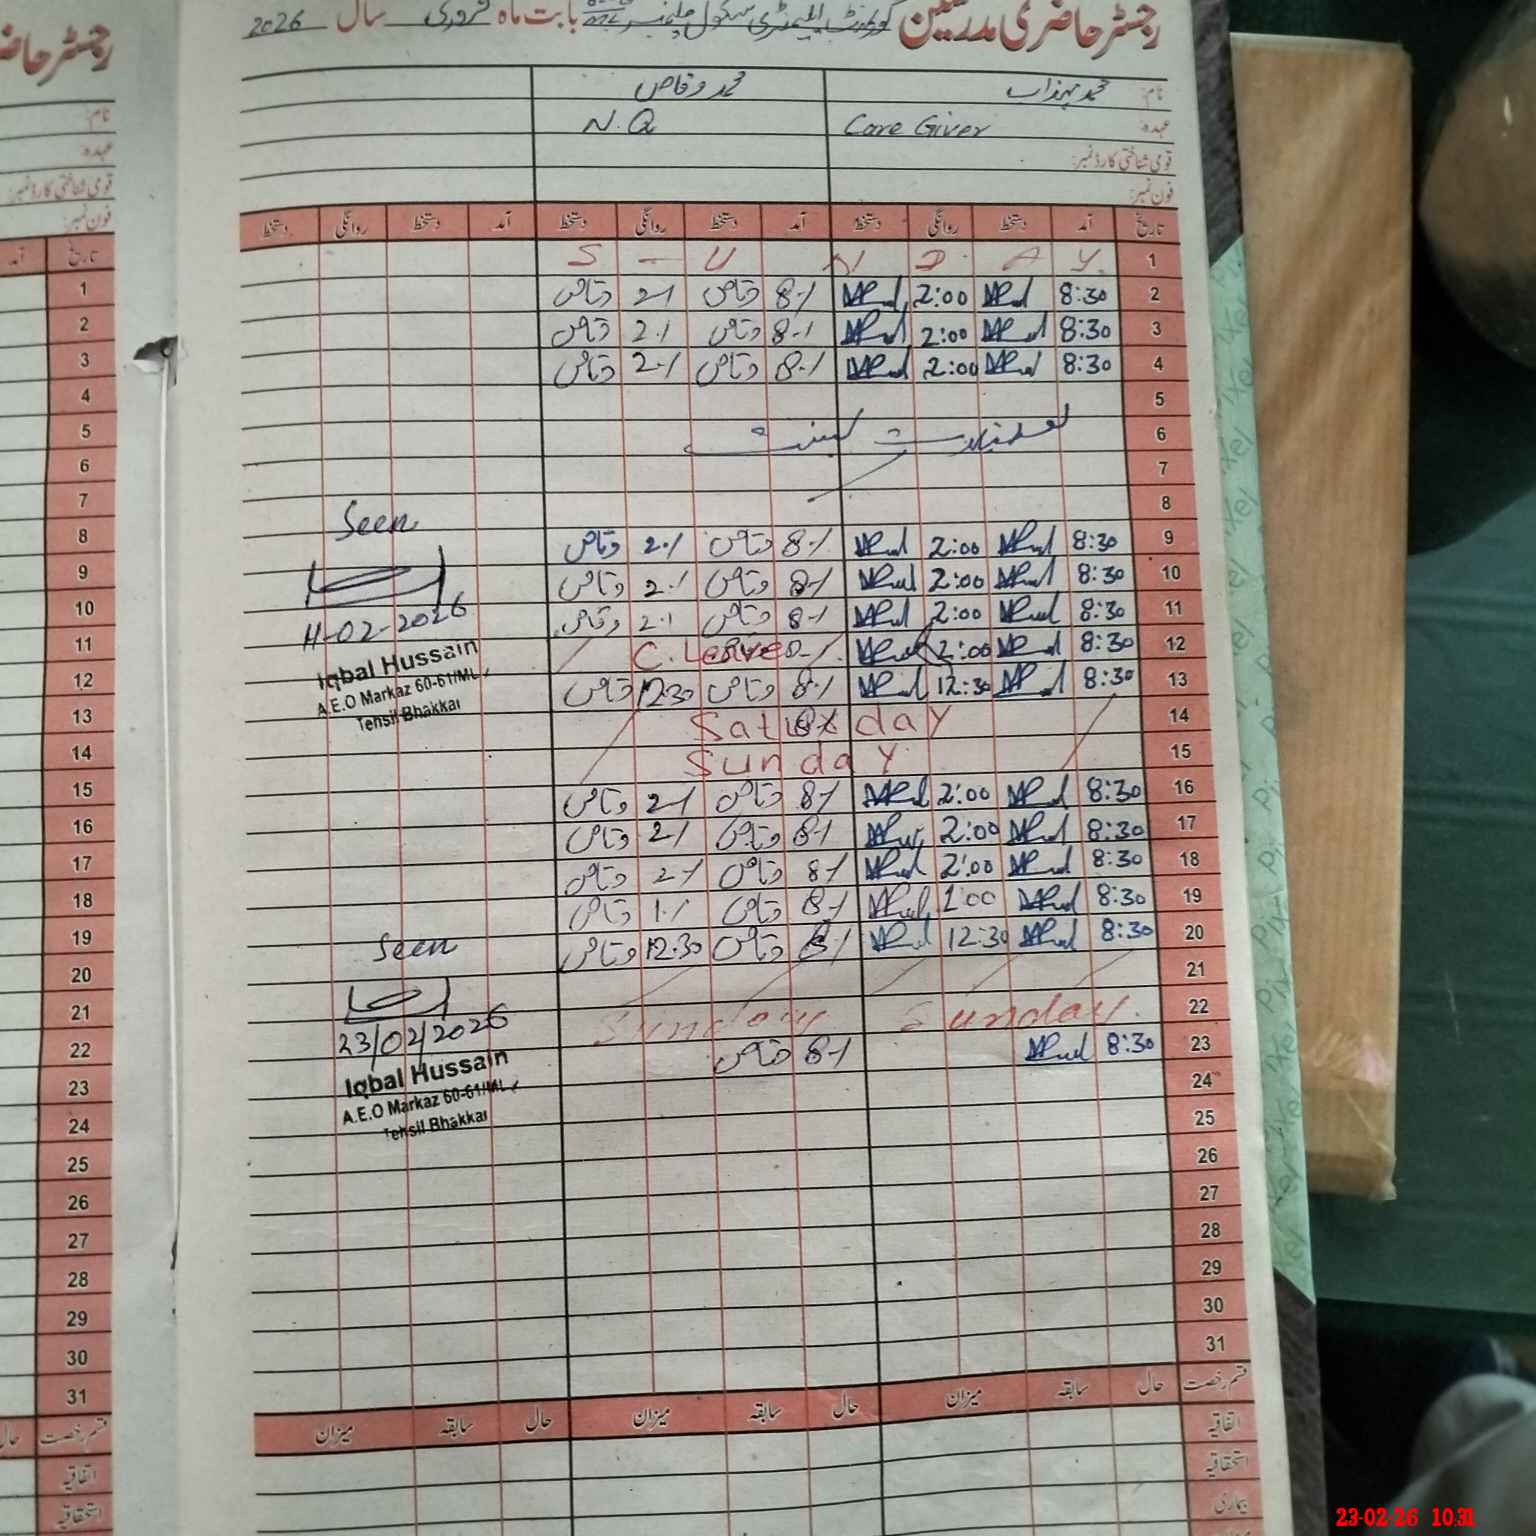 رجسٹر حاضری مدرسین گورنمنٹ ایلیمنٹری سکول بابت ماہ فروری سال 2026
نام: محمد محمد وقاص
عہدہ: Care Giver N.Q
قومی شناختی کارڈ نمبر:
فون نمبر:
تاریخ آمد دستخط روانگی دستخط آمد دستخط روانگی دستخط آمد دستخط روانگی دستخط
1 S U N D A Y
2 8:30 2:00 8-/ وقاص 2-/ وقاص
3 8:30 2:00 8-/ وقاص 2-/ وقاص
4 8:30 2:00 8-/ وقاص 2-/ وقاص
5
6 تعطیلات بسنت
7
8
Seen
9 8:30 2:00 8-/ وقاص 2-/ وقاص
10 8:30 2:00 8-/ وقاص 2-/ وقاص
11 8:30 2:00 8-/ وقاص 2-/ وقاص
11-02-2026
12 8:30 2:00 C. Leave
Iqbal Hussain
A.E.O Markaz 60-61/ML
Tehsil Bhakkar
13 8:30 12:30 8-/ وقاص 12.30 وقاص
14 Saturday
15 Sunday
16 8:30 2:00 8-/ وقاص 2-/ وقاص
17 8:30 2:00 8-/ وقاص 2-/ وقاص
18 8:30 2:00 8-/ وقاص 2-/ وقاص
19 8:30 1:00 8-/ وقاص 1-/ وقاص
20 8:30 12:30 8-/ وقاص 12.30 وقاص
Seen
21
22 Sunday Sunday
23/02/2026
23 8:30 8-/ وقاص
Iqbal Hussain
A.E.O Markaz 60-61/ML
Tehsil Bhakkar
24
25
26
27
28
29
30
31
قسم رخصت حال سابقہ میزان حال سابقہ میزان حال سابقہ میزان
اتفاقیہ
استحقاقیہ
بیماری
رجسٹر حاضری
نام:
عہدہ:
قومی شناختی کارڈ نمبر:
فون نمبر:
تاریخ آمد
1
2
3
4
5
6
7
8
9
10
11
12
13
14
15
16
17
18
19
20
21
22
23
24
25
26
27
28
29
30
31
قسم رخصت حال
اتفاقیہ
استحقاقیہ
23-02-26 10:31